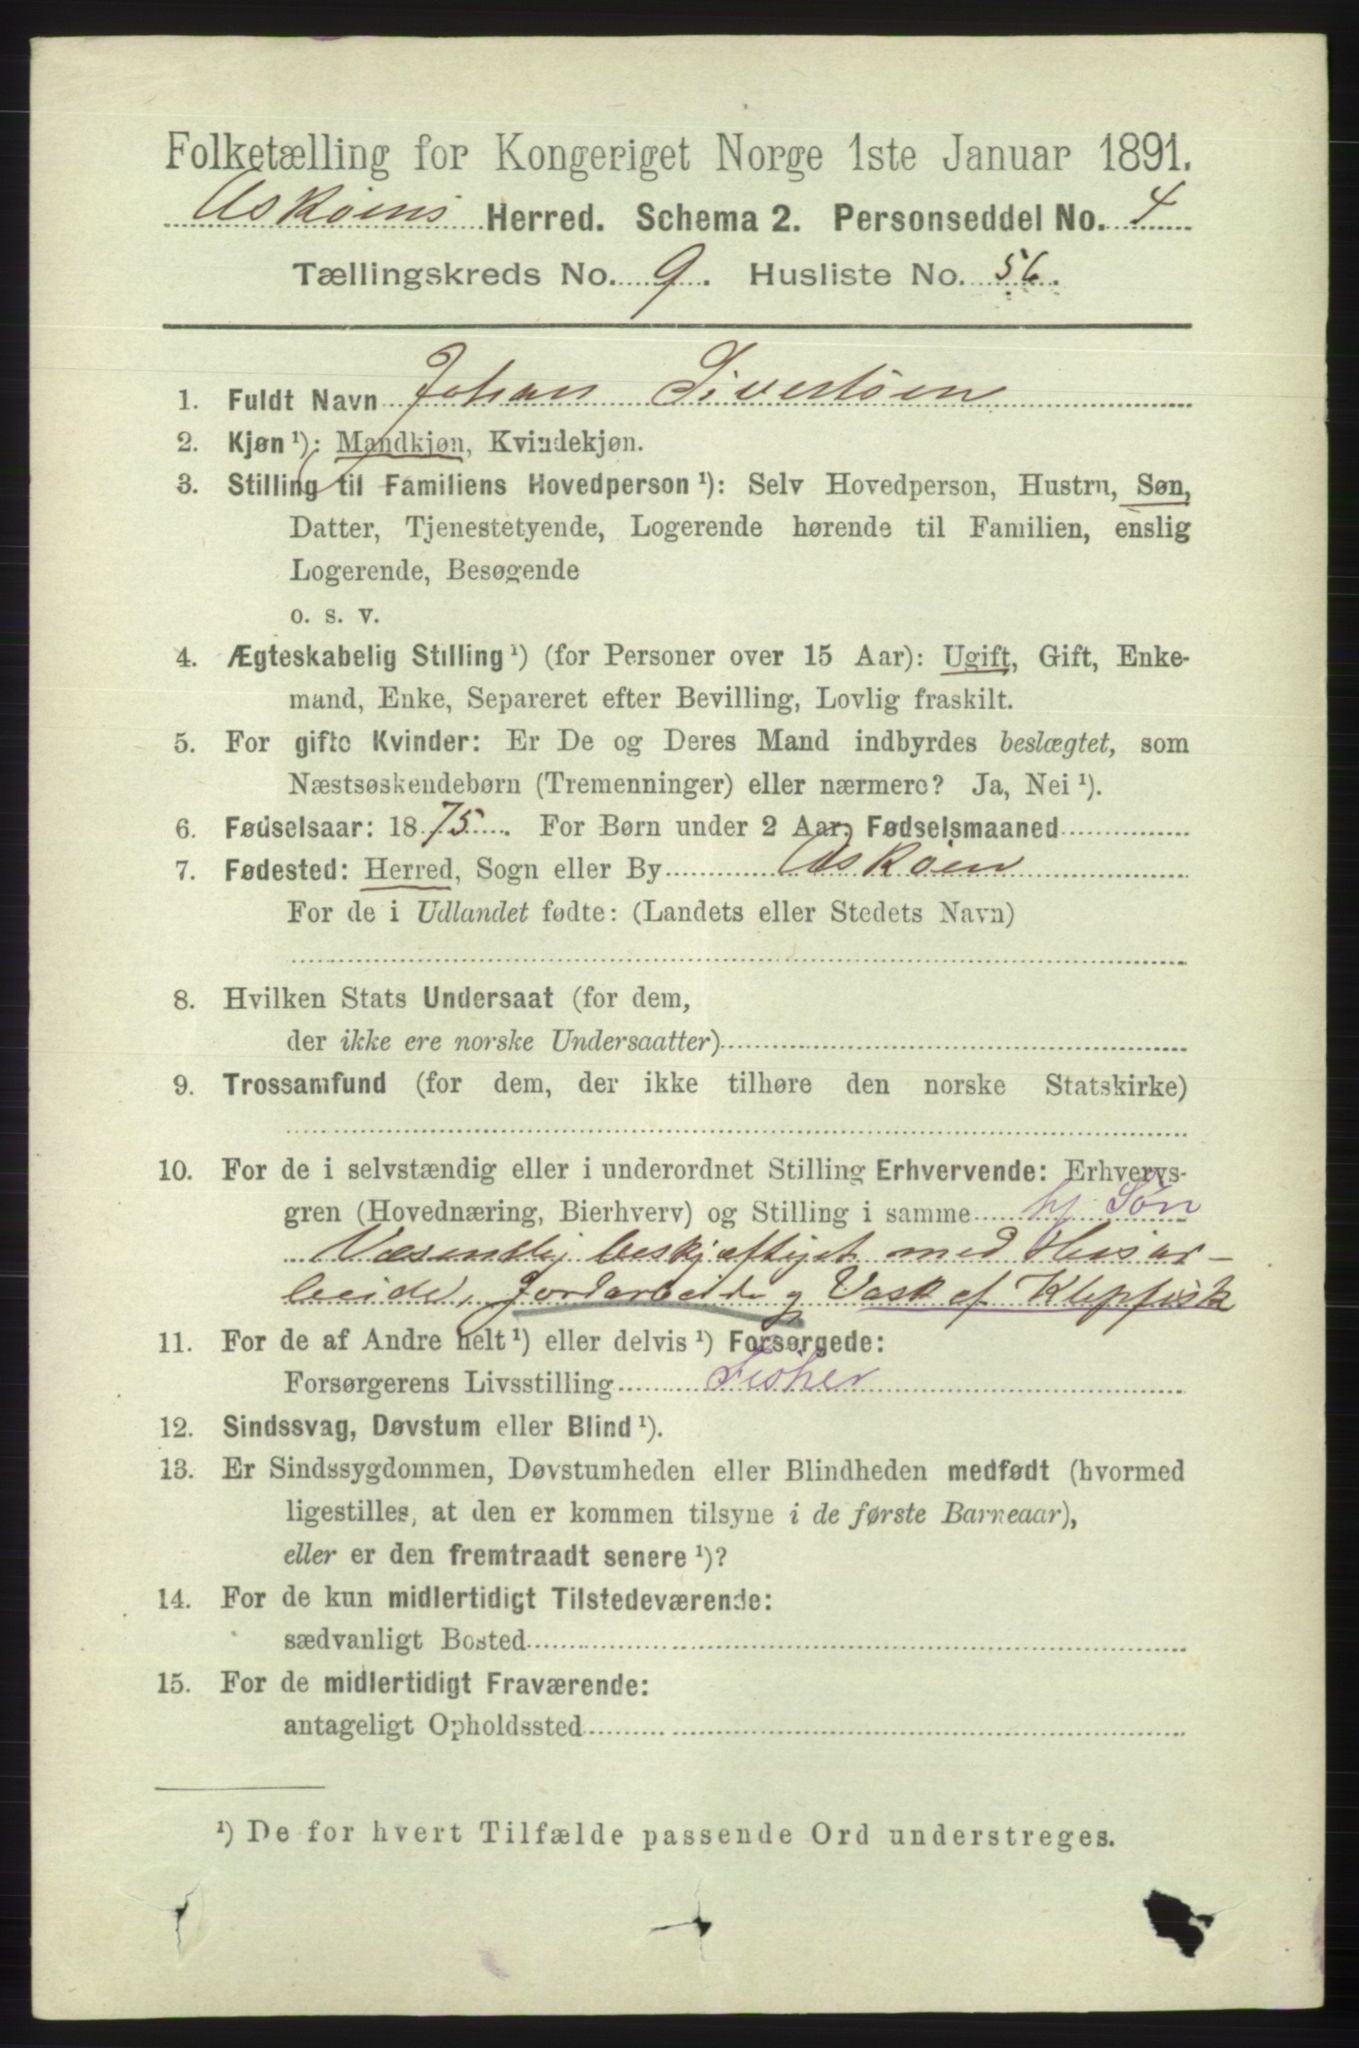 Folketælling for Kongeriget Norge 1ste Januar 1891.
Askøens Herred. Schema 2. Personseddel No. 4
Tællingskreds No. 9. Husliste No. 56.
1. Fuldt Navn Johan Sivertsen
2. Kjøn ¹): Mandkjøn, Kvindekjøn.
3. Stilling til Familiens Hovedperson ¹): Selv Hovedperson, Hustru, Søn,
Datter, Tjenestetyende, Logerende hørende til Familien, enslig
Logerende, Besøgende
o. s. v.
4. Ægteskabelig Stilling ¹) (for Personer over 15 Aar): Ugift, Gift, Enke-
mand, Enke, Separeret efter Bevilling, Lovlig fraskilt.
5. For gifte Kvinder: Er De og Deres Mand indbyrdes beslægtet, som
Næstsøskendebørn (Tremenninger) eller nærmere? Ja, Nei ¹).
6. Fødselsaar: 1875. For Børn under 2 Aar, Fødselsmaaned
7. Fødested: Herred, Sogn eller By Askøen
For de i Udlandet fødte: (Landets eller Stedets Navn)
8. Hvilken Stats Undersaat (for dem,
der ikke ere norske Undersaatter)
9. Trossamfund (for dem, der ikke tilhøre den norske Statskirke)
10. For de i selvstændig eller i underordnet Stilling Erhvervende: Erhvervs-
gren (Hovednæring, Bierhverv) og Stilling i samme hj Søn
Væsentlig beskjæftiget med Husar-
beide, Jordarbeide og Vask af Klipfisk
11. For de af Andre helt ¹) eller delvis ¹) Forsørgede:
Forsørgerens Livsstilling Fisker
12. Sindssvag, Døvstum eller Blind ¹).
13. Er Sindssygdommen, Døvstumheden eller Blindheden medfødt (hvormed
ligestilles, at den er kommen tilsyne i de første Barneaar),
eller er den fremtraadt senere ¹)?
14. For de kun midlertidigt Tilstedeværende:
sædvanligt Bosted
15. For de midlertidigt Fraværende:
antageligt Opholdssted
¹) De for hvert Tilfælde passende Ord understreges.